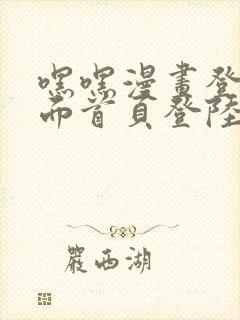 嘿嘿漫畫登
而首頁登陸
嚴西湖